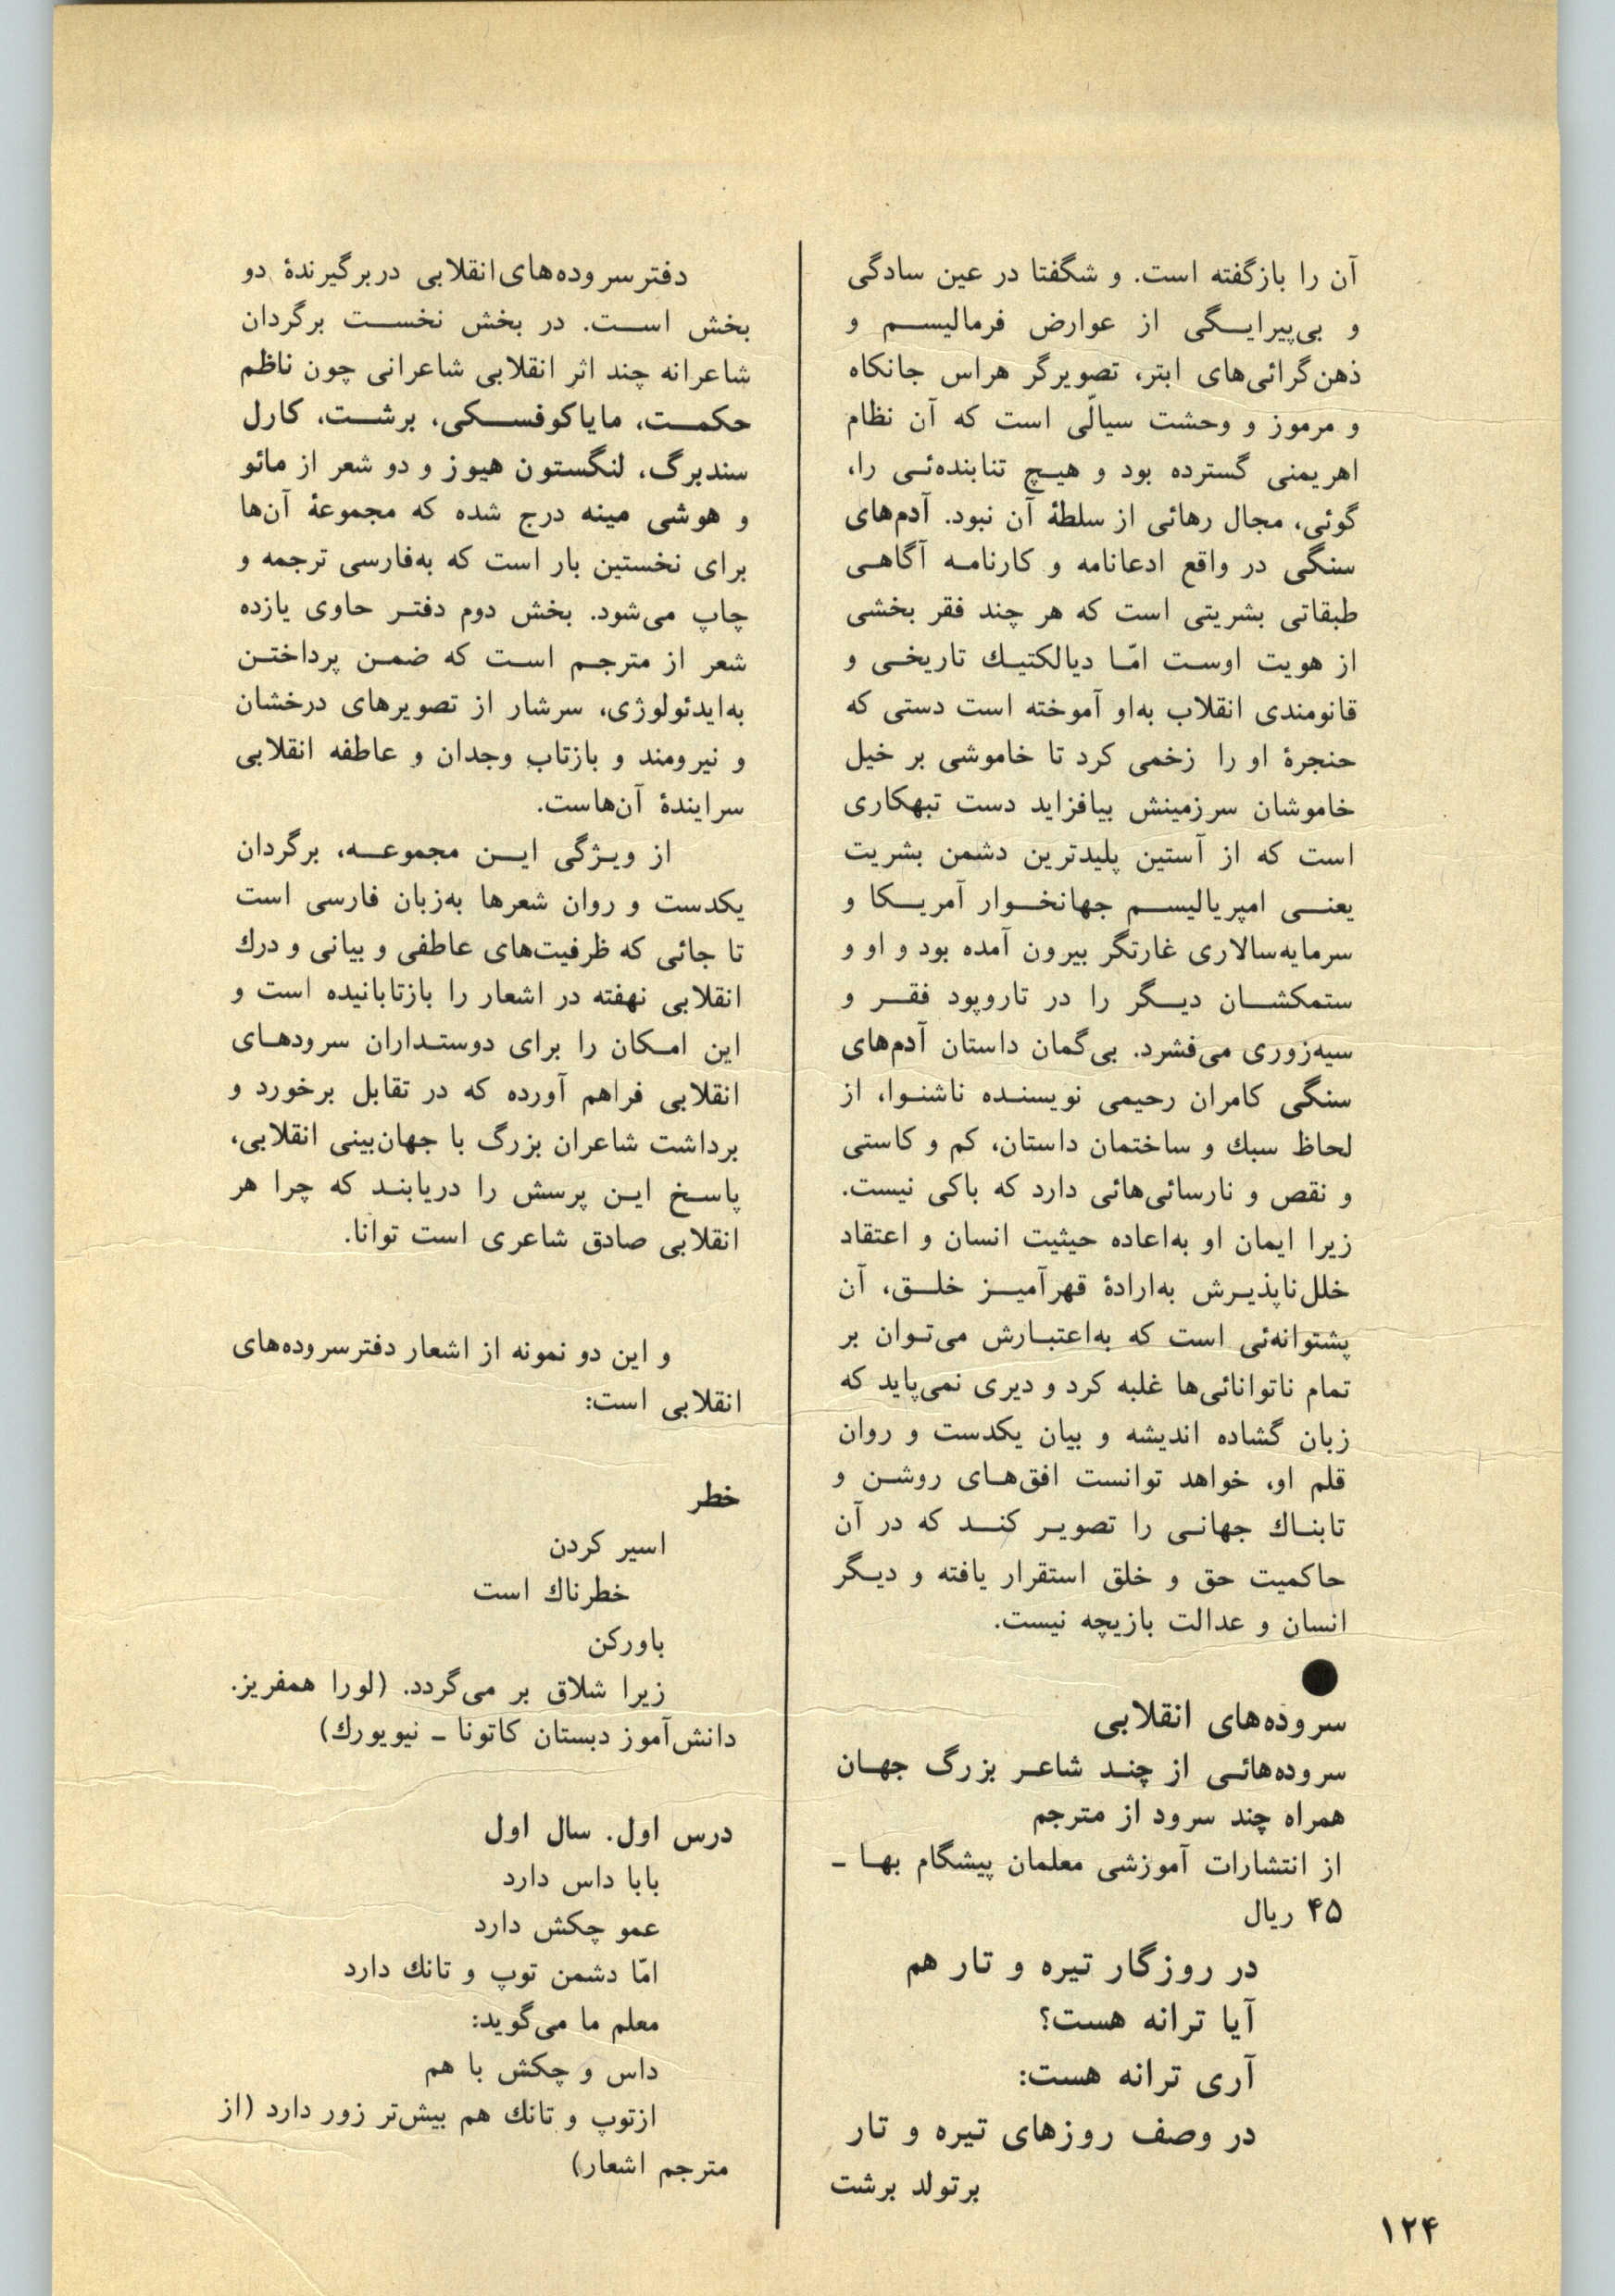 آن را بازگفته است. و شگفتا در عین سادگی
و بی‌پیرایگی از عوارض فرمالیسم و
ذهن‌گرائی‌های ابتر، تصویرگر هراس جانکاه
و مرموز و وحشت سیالّی است که آن نظام
اهریمنی گسترده بود و هیچ تنابنده‌ئی را،
گوئی، مجال رهائی از سلطهٔ آن نبود. آدم‌های
سنگی در واقع ادعانامه و کارنامه آگاهی
طبقاتی بشریتی است که هر چند فقر بخشی
از هویت اوست امّا دیالکتیك تاریخی و
قانومندی انقلاب به‌او آموخته است دستی که
حنجرهٔ او را زخمی کرد تا خاموشی بر خیل
خاموشان سرزمینش بیافزاید دست تبهکاری
است که از آستین پلیدترین دشمن بشریت
یعنی امپریالیسم جهانخوار آمریکا و
سرمایه‌سالاری غارتگر بیرون آمده بود و او و
ستمکشان دیگر را در تاروپود فقر و
سیه‌زوری می‌فشرد. بی‌گمان داستان آدم‌های
سنگی کامران رحیمی نویسنده ناشنوا، از
لحاظ سبك و ساختمان داستان، کم و کاستی
و نقص و نارسائی‌هائی دارد که باکی نیست.
زیرا ایمان او به‌اعاده حیثیت انسان و اعتقاد
خلل‌ناپذیرش به‌ارادهٔ قهرآمیز خلق، آن
پشتوانه‌ئی است که به‌اعتبارش می‌توان بر
تمام ناتوانائی‌ها غلبه کرد و دیری نمی‌پاید که
زبان گشاده اندیشه و بیان یکدست و روان
قلم او، خواهد توانست افق‌های روشن و
تابناك جهانی را تصویر کند که در آن
حاکمیت حق و خلق استقرار یافته و دیگر
انسان و عدالت بازیچه نیست.
●
سروده‌های انقلابی
سروده‌هائی از چند شاعر بزرگ جهان
همراه چند سرود از مترجم
از انتشارات آموزشی معلمان پیشگام بها ـ
۴۵ ریال
در روزگار تیره و تار هم
آیا ترانه هست؟
آری ترانه هست:
در وصف روزهای تیره و تار
برتولد برشت
دفترسروده‌های‌انقلابی دربرگیرندهٔ دو
بخش است. در بخش نخست برگردان
شاعرانه چند اثر انقلابی شاعرانی چون ناظم
حکمت، مایاکوفسکی، برشت، کارل
سندبرگ، لنگستون هیوز و دو شعر از مائو
و هوشی مینه درج شده که مجموعهٔ آن‌ها
برای نخستین بار است که به‌فارسی ترجمه و
چاپ می‌شود. بخش دوم دفتر حاوی یازده
شعر از مترجم است که ضمن پرداختن
به‌ایدئولوژی، سرشار از تصویرهای درخشان
و نیرومند و بازتاب وجدان و عاطفه انقلابی
سرایندهٔ آن‌هاست.
از ویژگی این مجموعه، برگردان
یکدست و روان شعرها به‌زبان فارسی است
تا جائی که ظرفیت‌های عاطفی و بیانی و درك
انقلابی نهفته در اشعار را بازتابانیده است و
این امکان را برای دوستداران سرودهای
انقلابی فراهم آورده که در تقابل برخورد و
برداشت شاعران بزرگ با جهان‌بینی انقلابی،
پاسخ این پرسش را دریابند که چرا هر
انقلابی صادق شاعری است توانا.
و این دو نمونه از اشعار دفترسروده‌های
انقلابی است:
خطر
اسیر کردن
خطرناك است
باورکن
زیرا شلاق بر می‌گردد. (لورا همفریز.
دانش‌آموز دبستان کاتونا ـ نیویورك)
درس اول. سال اول
بابا داس دارد
عمو چکش دارد
امّا دشمن توپ و تانك دارد
معلم ما می‌گوید:
داس و چکش با هم
ازتوپ و تانك هم بیش‌تر زور دارد (از
مترجم اشعار)
۱۲۴